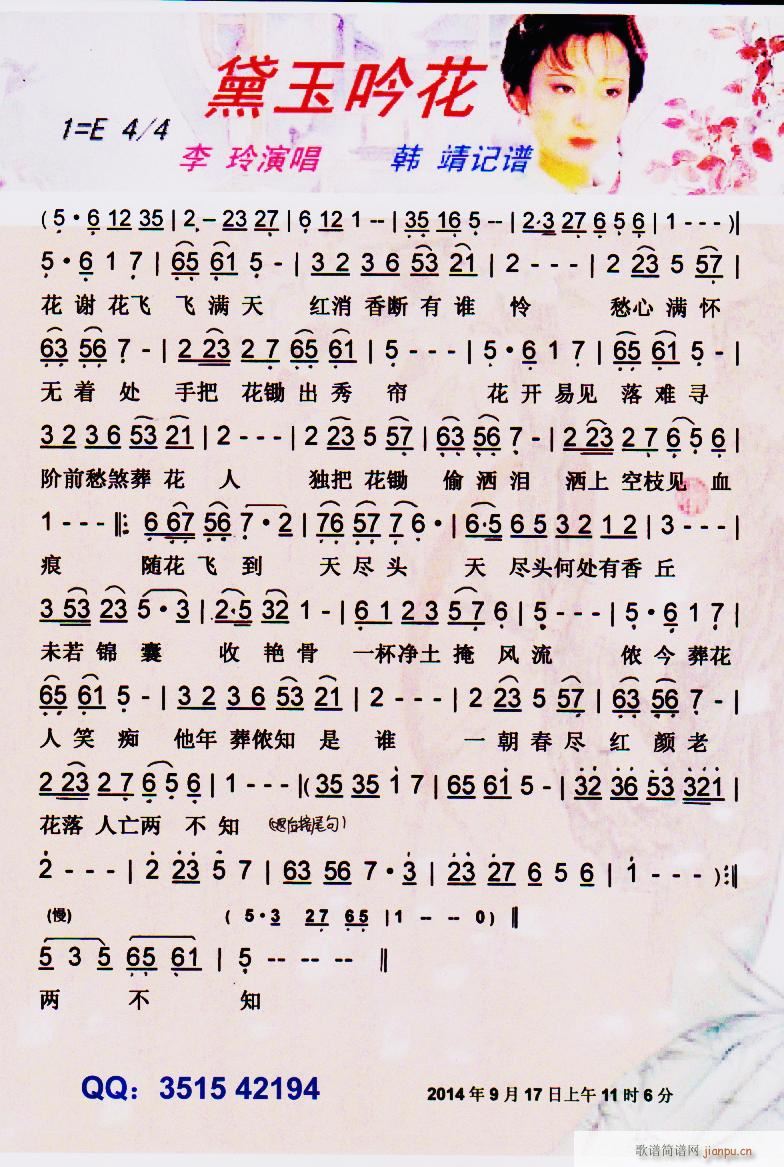 黛玉吟花
1=E 4/4
李 玲演唱 韩 靖记谱
(5·6 12 35|2·–23 27|6 12 1--|35 16 5--|2·3 27 6 5 6|1---)|
5·6 1 7|65 61 5-|3 2 3 6 53 21|2---|2 23 5 57|
花谢花飞 飞满天 红消香断有谁 怜 愁心满怀
63 56 7-|2 23 2 7 65 61|5---|5·6 1 7|65 61 5-|
无着 处 手把 花锄出秀 帘 花开易见 落难寻
3 2 3 6 53 21|2---|2 23 5 57|63 56 7-|2 23 2 7 6 5 6|
阶前愁煞葬 花 人 独把 花锄 偷 洒泪 洒上 空枝见 血
1---‖:6 67 56 7·2|76 57 7 6·|6·5 6 5 3 2 1 2|3---|
痕 随花 飞 到 天 尽头 天 尽头何处有香 丘
3 53 23 5·3|2·5 32 1-|6 1 2 3 5 7 6|5---|5·6 1 7|
未若 锦 囊 收 艳 骨 一杯净土 掩 风 流 侬 今 葬花
65 61 5-|3 2 3 6 53 21|2---|2 23 5 57|63 56 7-|
人 笑 痴 他年 葬侬知 是 谁 一 朝 春 尽 红 颜 老
2 23 2 7 6 5 6|1---|(35 35 1 7|65 61 5-|32 36 53 321|
花落 人亡两 不 知 接尾句)
2---|2 23 5 7|63 56 7·3|23 27 6 5 6|1---):‖
(慢) (5·3 27 65|1 -- -- 0)‖
5 3 5 65 61|5 -- -- --‖
两 不 知
QQ：3515 42194 2014 年 9 月 17 日上午 11 时 6 分
歌谱简谱网
jianpu.cn